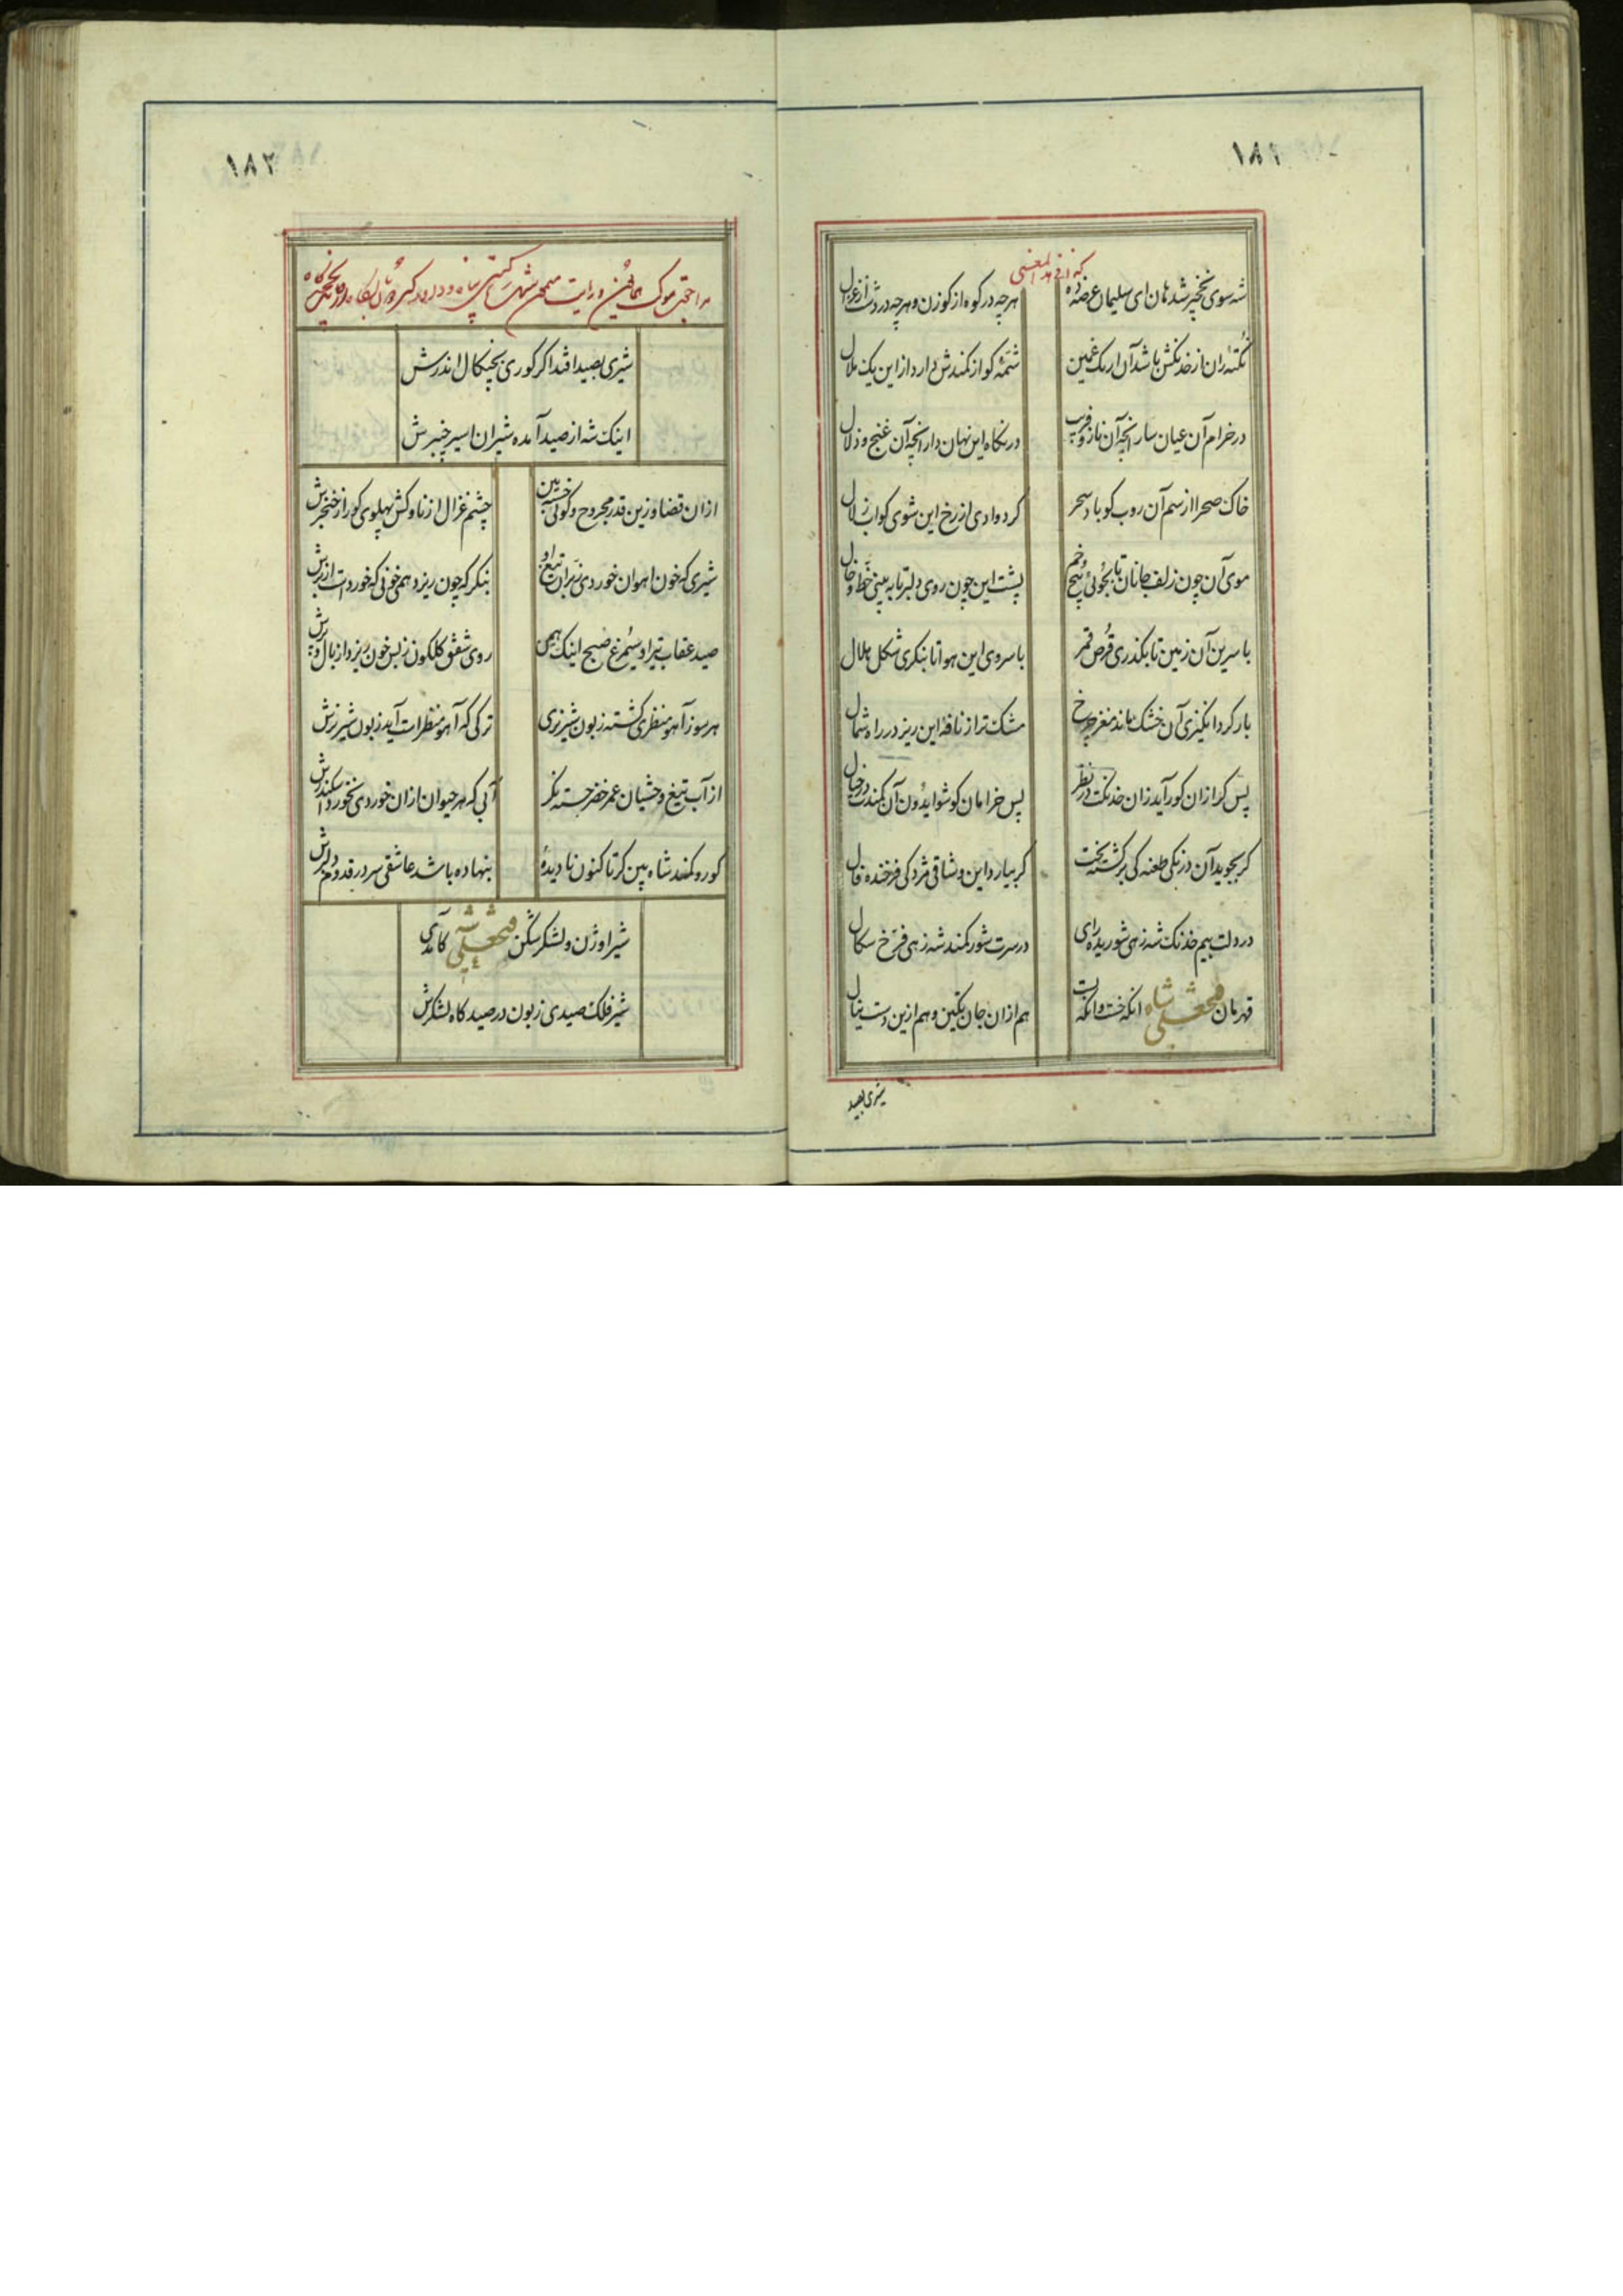 ۱۸۱
شه سوی نخچیر شد هان ای سلیمان عرضه ده
هر چه در کوه از کوزن و هر چه در دشت از غزال
نکته ران از خدنکش باشد آن ارنک غمین
شمهٔ کو از کمندش دارد از این یک ملال
در خرام آن عیان سار انچه آن ناز و فریب
در نکاه این نهان دار انچه آن غنج و دلال
خاک صحرا از سم آن روب کو باد سحر
کرد وادی از رخ این شوی کو اب زلال
موی آن چون زلف جانان تا بجوئی پیچ و خم
پشت این چون روی دلبر تا به بینی خط و خال
با سرین آن زمین تا بکذری قرص قمر
با سروی این هوا تا بنکری شکل هلال
بار کرد انکیزی آن خشک ماند مغز چرخ
مشک تر از نافهٔ این ریز در راه شمال
پس کرازان کور آید زان خدنکت در نظر
پس خرامان کو شو ایدون آن کمندت در خیال
کر بجوید آن درنکی طعنه کی برکشته بخت
کر بیارد این وشاقی مژدکی فرخنده فال
در دلت بیم خدنک شه زهی شوریده رای
در سرت شور کمند شه زهی فرخ سکال
قهرمان فتحعلی شاه انکه خست و انکه بست
هم ازان جان تکین و هم ازین دست ینال
شیری بصید
۱۸۲
شیری بصید افتد اکر کوری بچنکال اندرش
اینک شه از صید آمده شیران اسیر چنبرش
ازان قضا وزین قدر مجروح و کوئی خسته بین
چشم غزال از ناوکش پهلوی کور از خنجرش
شیری که خون اهوان خوردی ز بران تیغ او
بنکر که چون ریزد همی خونی که خوردست از برش
صید عقاب تیر او سیمرغ صبح اینک همین
روی شفق کلکون زبس خون ریزد از بال و پرش
هر سو ز آهو منظری کشته زبون شیر نری
ترکی که آهو منظرات آید زبون شیر نرش
از آب تیغ وحشیان عمر خضر جسته نکر
آبی که هر حیوان ازان خوردی نخورد اسکندرش
کور و کمند شاه بین کر تا کنون نادیدهٔ
بنهاده باشد عاشقی سر در قدوم دلبرش
شیر اوژن و لشکر شکن فتحعلی شه کامدی
شیر فلک صیدی زبون در صید کاه لشکرش